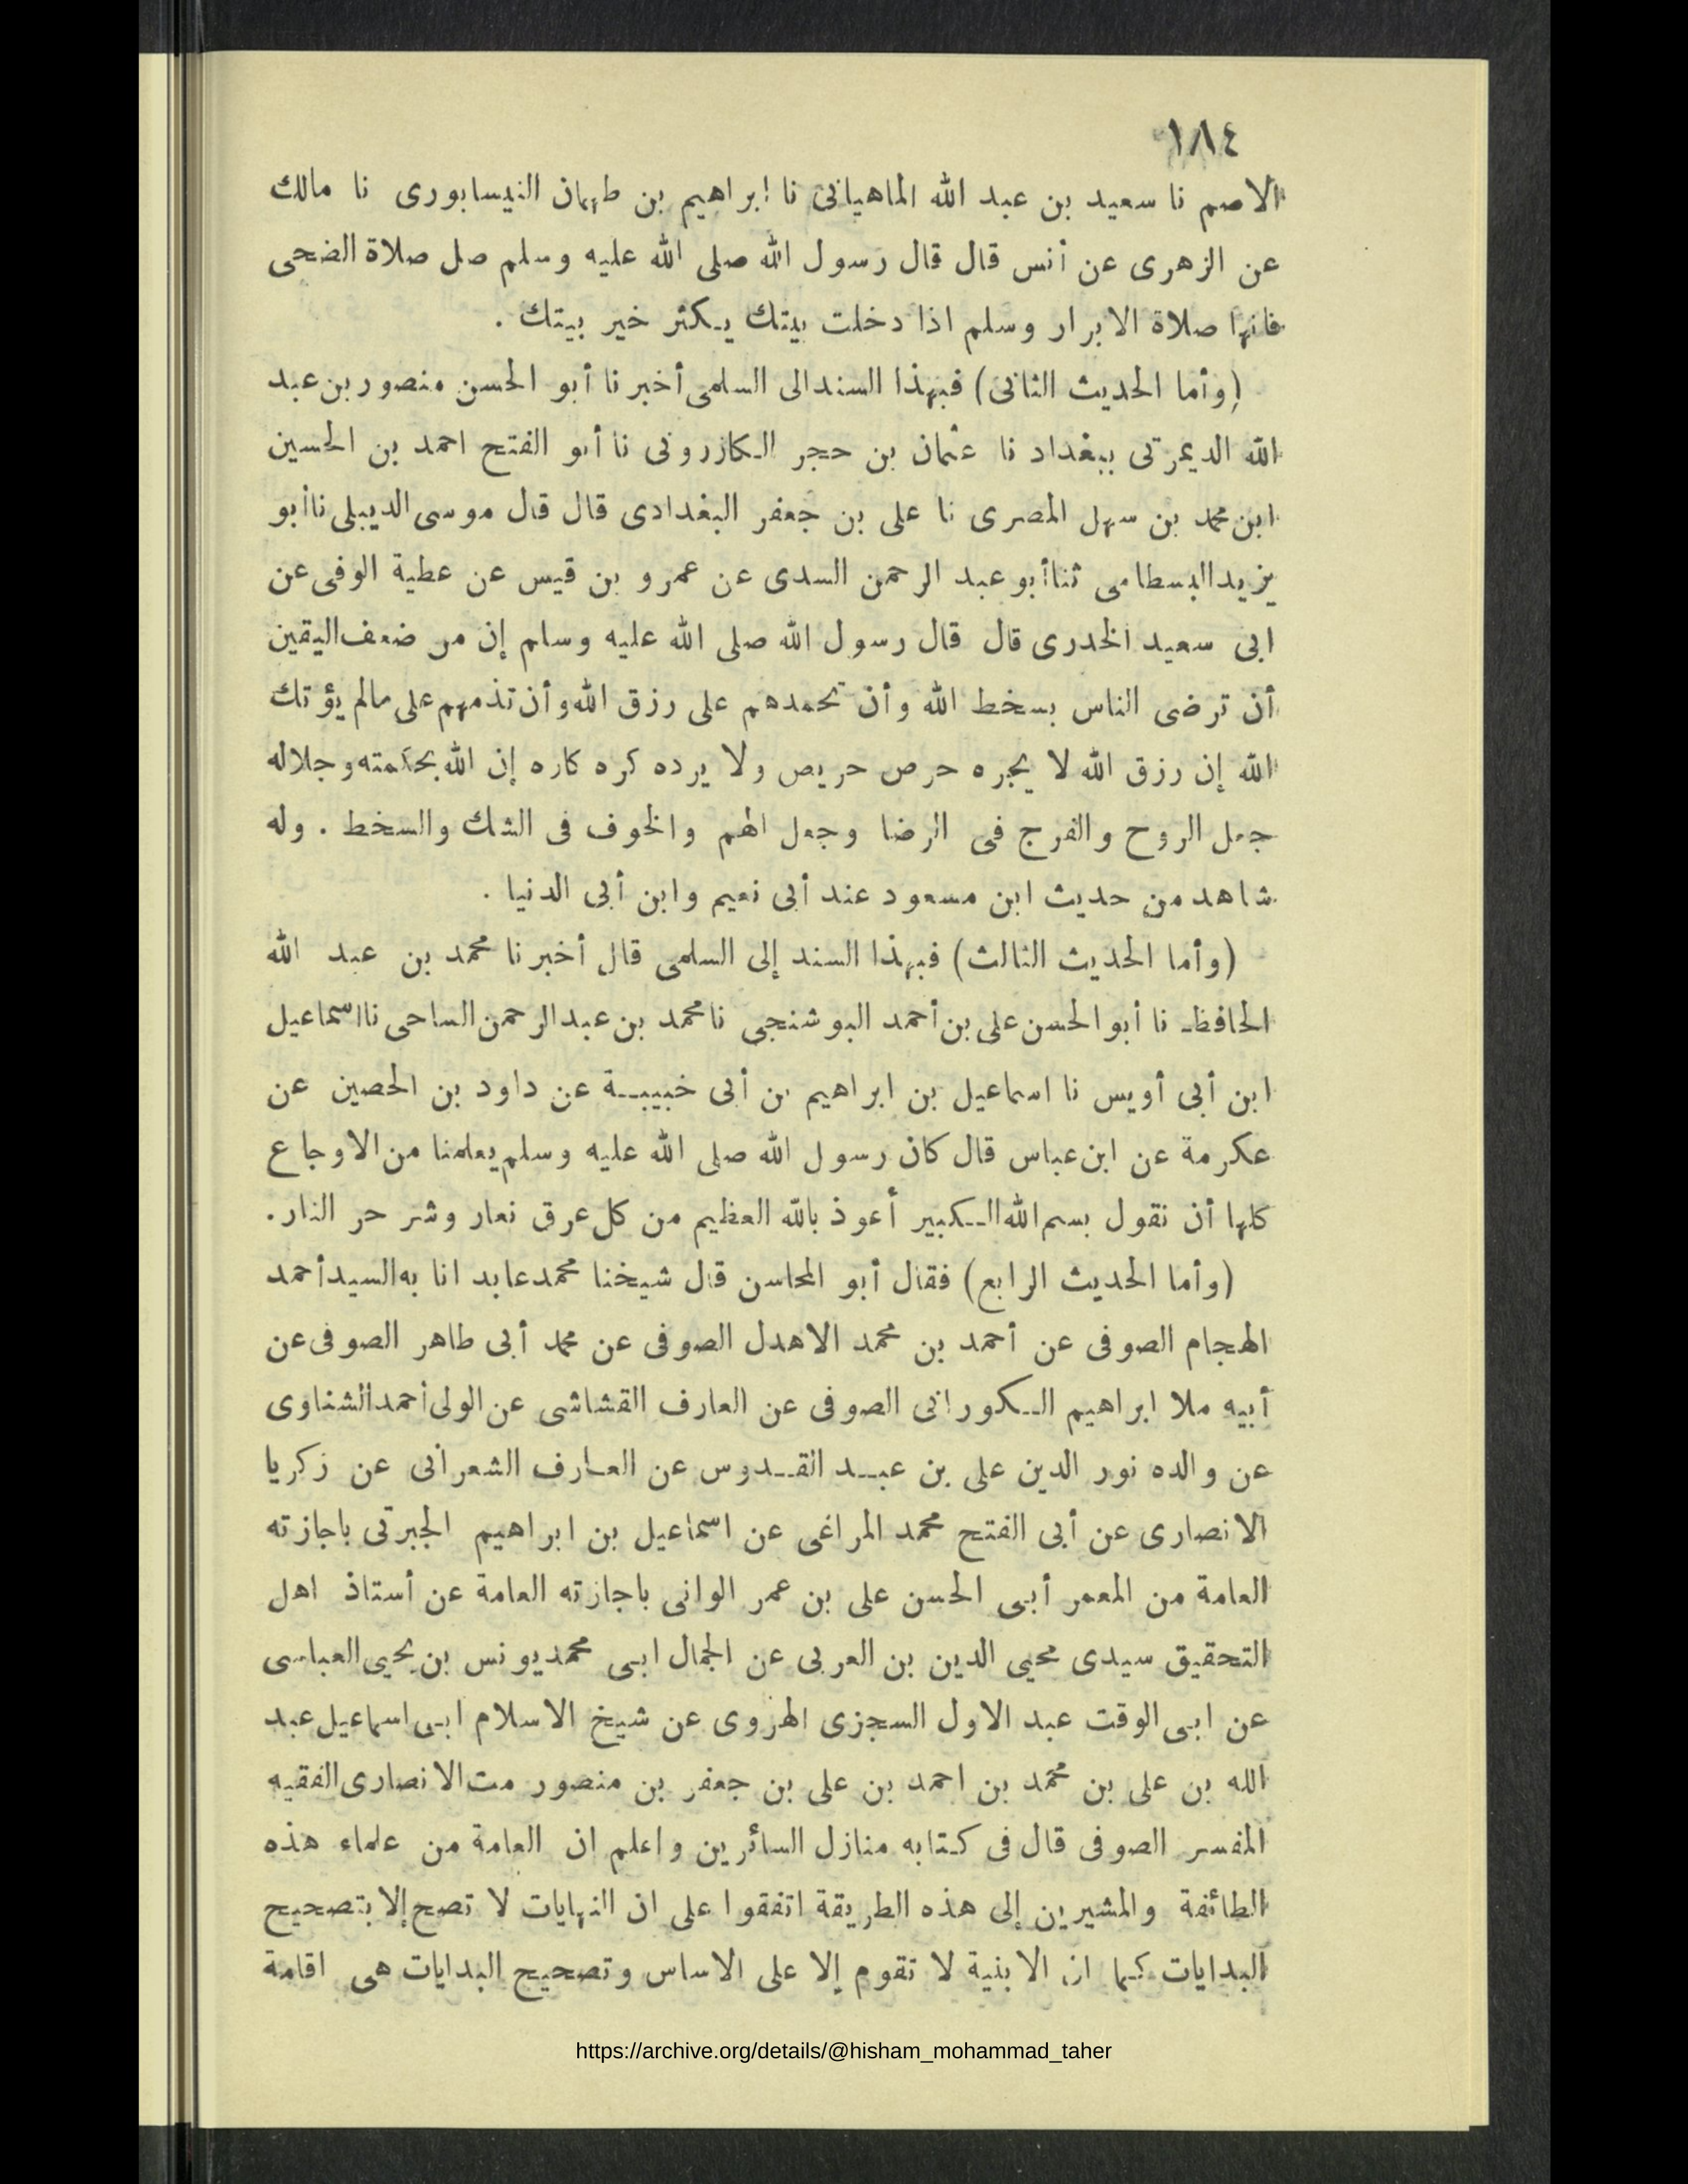 ١٨٤
الاصم نا سعيد بن عبد الله الماهيانى نا ابراهيم بن طهمان النيسابورى نا مالك
عن الزهرى عن أنس قال قال رسول الله صلى الله عليه وسلم صل صلاة الضحى
فانها صلاة الابرار وسلم اذا دخلت بيتك يكثر خير بيتك .
(وأما الحديث الثانى) فبهذا السند الى السلمى أخبرنا أبو الحسن منصور بن عبد
الله الديمرتى ببغداد نا عثمان بن حجر الكازرونى نا أبو الفتح احمد بن الحسين
ابن محمد بن سهل المصرى نا على بن جعفر البغدادى قال قال موسى الديبلى نا أبو
يزيد البسطامى ثنا أبو عبد الرحمن السدى عن عمرو بن قيس عن عطية الوفى عن
ابى سعيد الخدرى قال قال رسول الله صلى الله عليه وسلم إن من ضعف اليقين
أن ترضى الناس بسخط الله وأن تحمدهم على رزق الله وأن تذمهم على مالم يؤتك
الله إن رزق الله لا يجره حرص حريص ولا يرده كره كاره إن الله بحكمته وجلاله
جعل الروح والفرج فى الرضا وجعل الهم والخوف فى الشك والسخط . وله
شاهد من حديث ابن مسعود عند أبى نعيم وابن أبى الدنيا .
(وأما الحديث الثالث) فبهذا السند إلى السلمى قال أخبرنا محمد بن عبد الله
الحافظ نا أبو الحسن على بن أحمد البوشنجى نا محمد بن عبد الرحمن الساحى نا اسماعيل
ابن أبى أويس نا اسماعيل بن ابراهيم بن أبى خبيبة عن داود بن الحصين عن
عكرمة عن ابن عباس قال كان رسول الله صلى الله عليه وسلم يعلمنا من الاوجاع
كلها أن نقول بسم الله الكبير أعوذ بالله العظيم من كل عرق نعار وشر حر النار.
(وأما الحديث الرابع) فقال أبو المحاسن قال شيخنا محمد عابد انا به السيد أحمد
الهجام الصوفى عن أحمد بن محمد الاهدل الصوفى عن محمد أبى طاهر الصوفى عن
أبيه ملا ابراهيم الكورانى الصوفى عن العارف القشاشى عن الولى أحمد الشناوى
عن والده نور الدين على بن عبد القدوس عن العارف الشعرانى عن زكريا
الانصارى عن أبى الفتح محمد المراغى عن اسماعيل بن ابراهيم الجبرتى باجازته
العامة من المعمر أبى الحسن على بن عمر الوانى باجازته العامة عن أستاذ اهل
التحقيق سيدى محيى الدين بن العربى عن الجمال ابى محمد يونس بن يحيى العباسى
عن ابى الوقت عبد الاول السجزى الهروى عن شيخ الاسلام ابى اسماعيل عبد
الله بن على بن محمد بن احمد بن على بن جعفر بن منصور مت الانصارى الفقيه
المفسر الصوفى قال فى كتابه منازل السائرين واعلم ان العامة من علماء هذه
الطائفة والمشيرين إلى هذه الطريقة اتفقوا على ان النهايات لا تصح إلا بتصحيح
البدايات كما ان الابنية لا تقوم إلا على الاساس وتصحيح البدايات هى اقامة
https://archive.org/details/@hisham_mohammad_taher